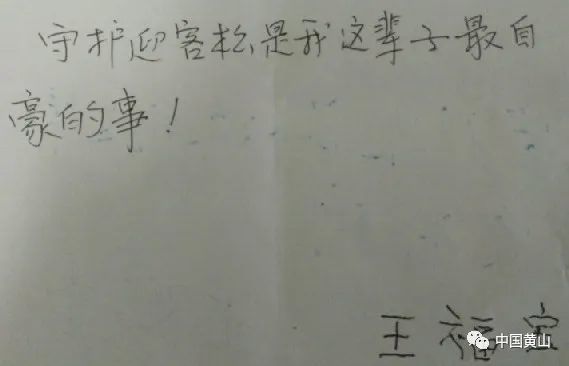 守护迎客松是我这辈子最自
豪的事！
王福宝
中国黄山